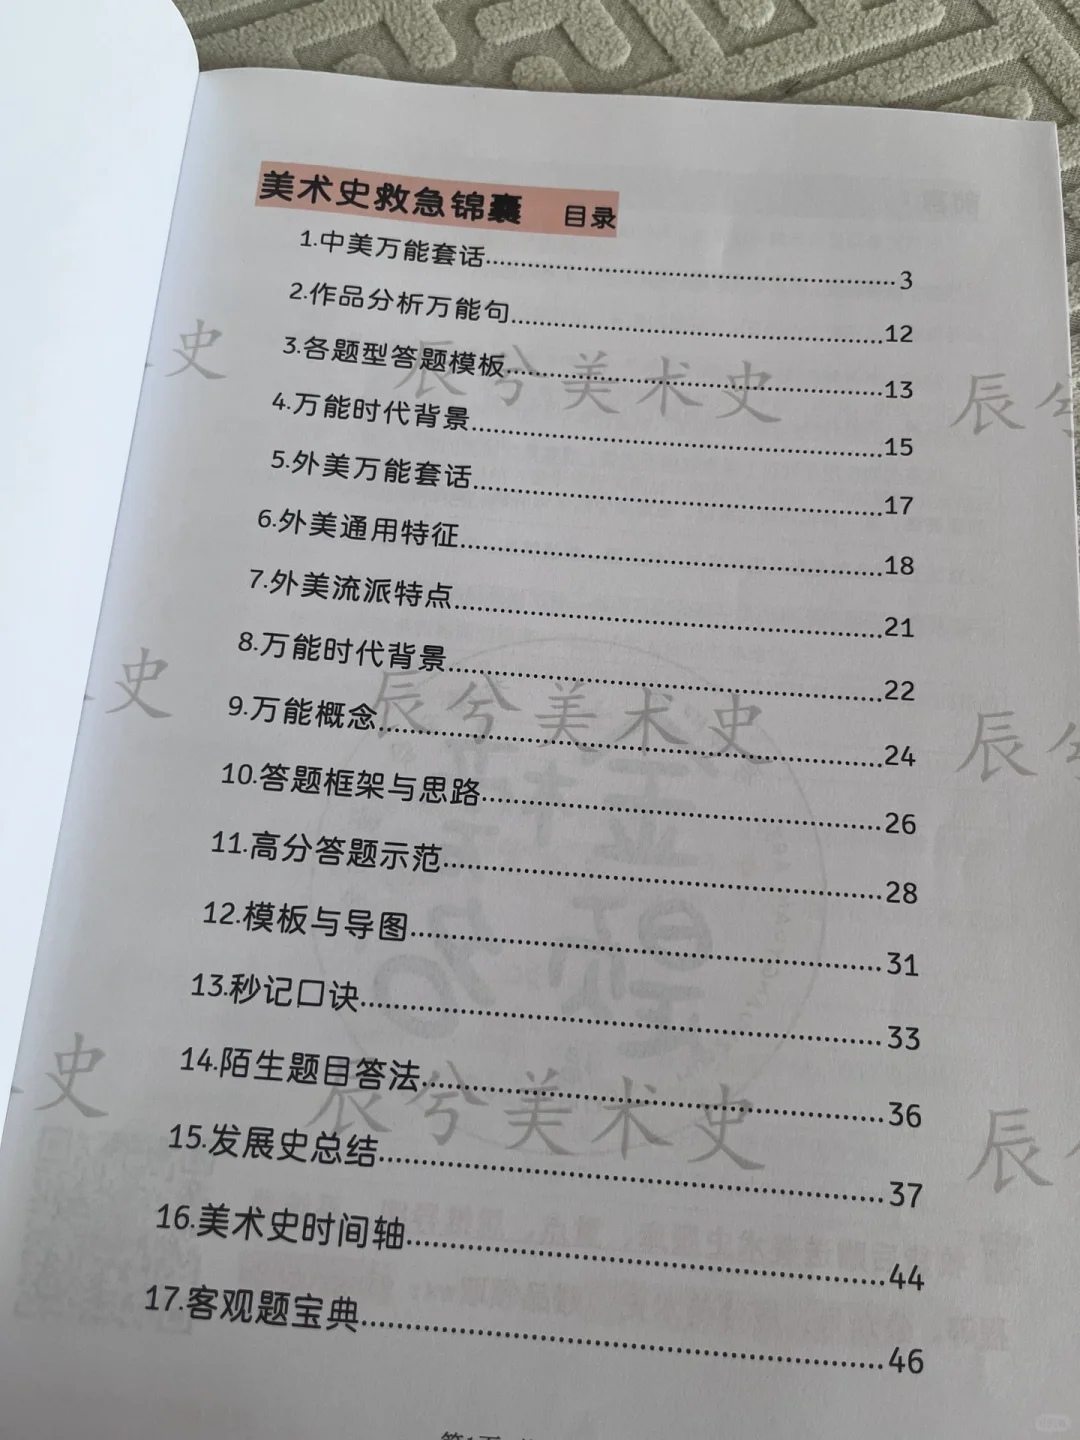 美术史救急锦囊 目录
1.中美万能套话 3
2.作品分析万能句 12
3.各题型答题模板 13
4.万能时代背景 15
5.外美万能套话 17
6.外美通用特征 18
7.外美流派特点 21
8.万能时代背景 22
9.万能概念 24
10.答题框架与思路 26
11.高分答题示范 28
12.模板与导图 31
13.秒记口诀 33
14.陌生题目答法 36
15.发展史总结 37
16.美术史时间轴 44
17.客观题宝典 46
辰兮美术史
辰兮美术史
辰兮美术史